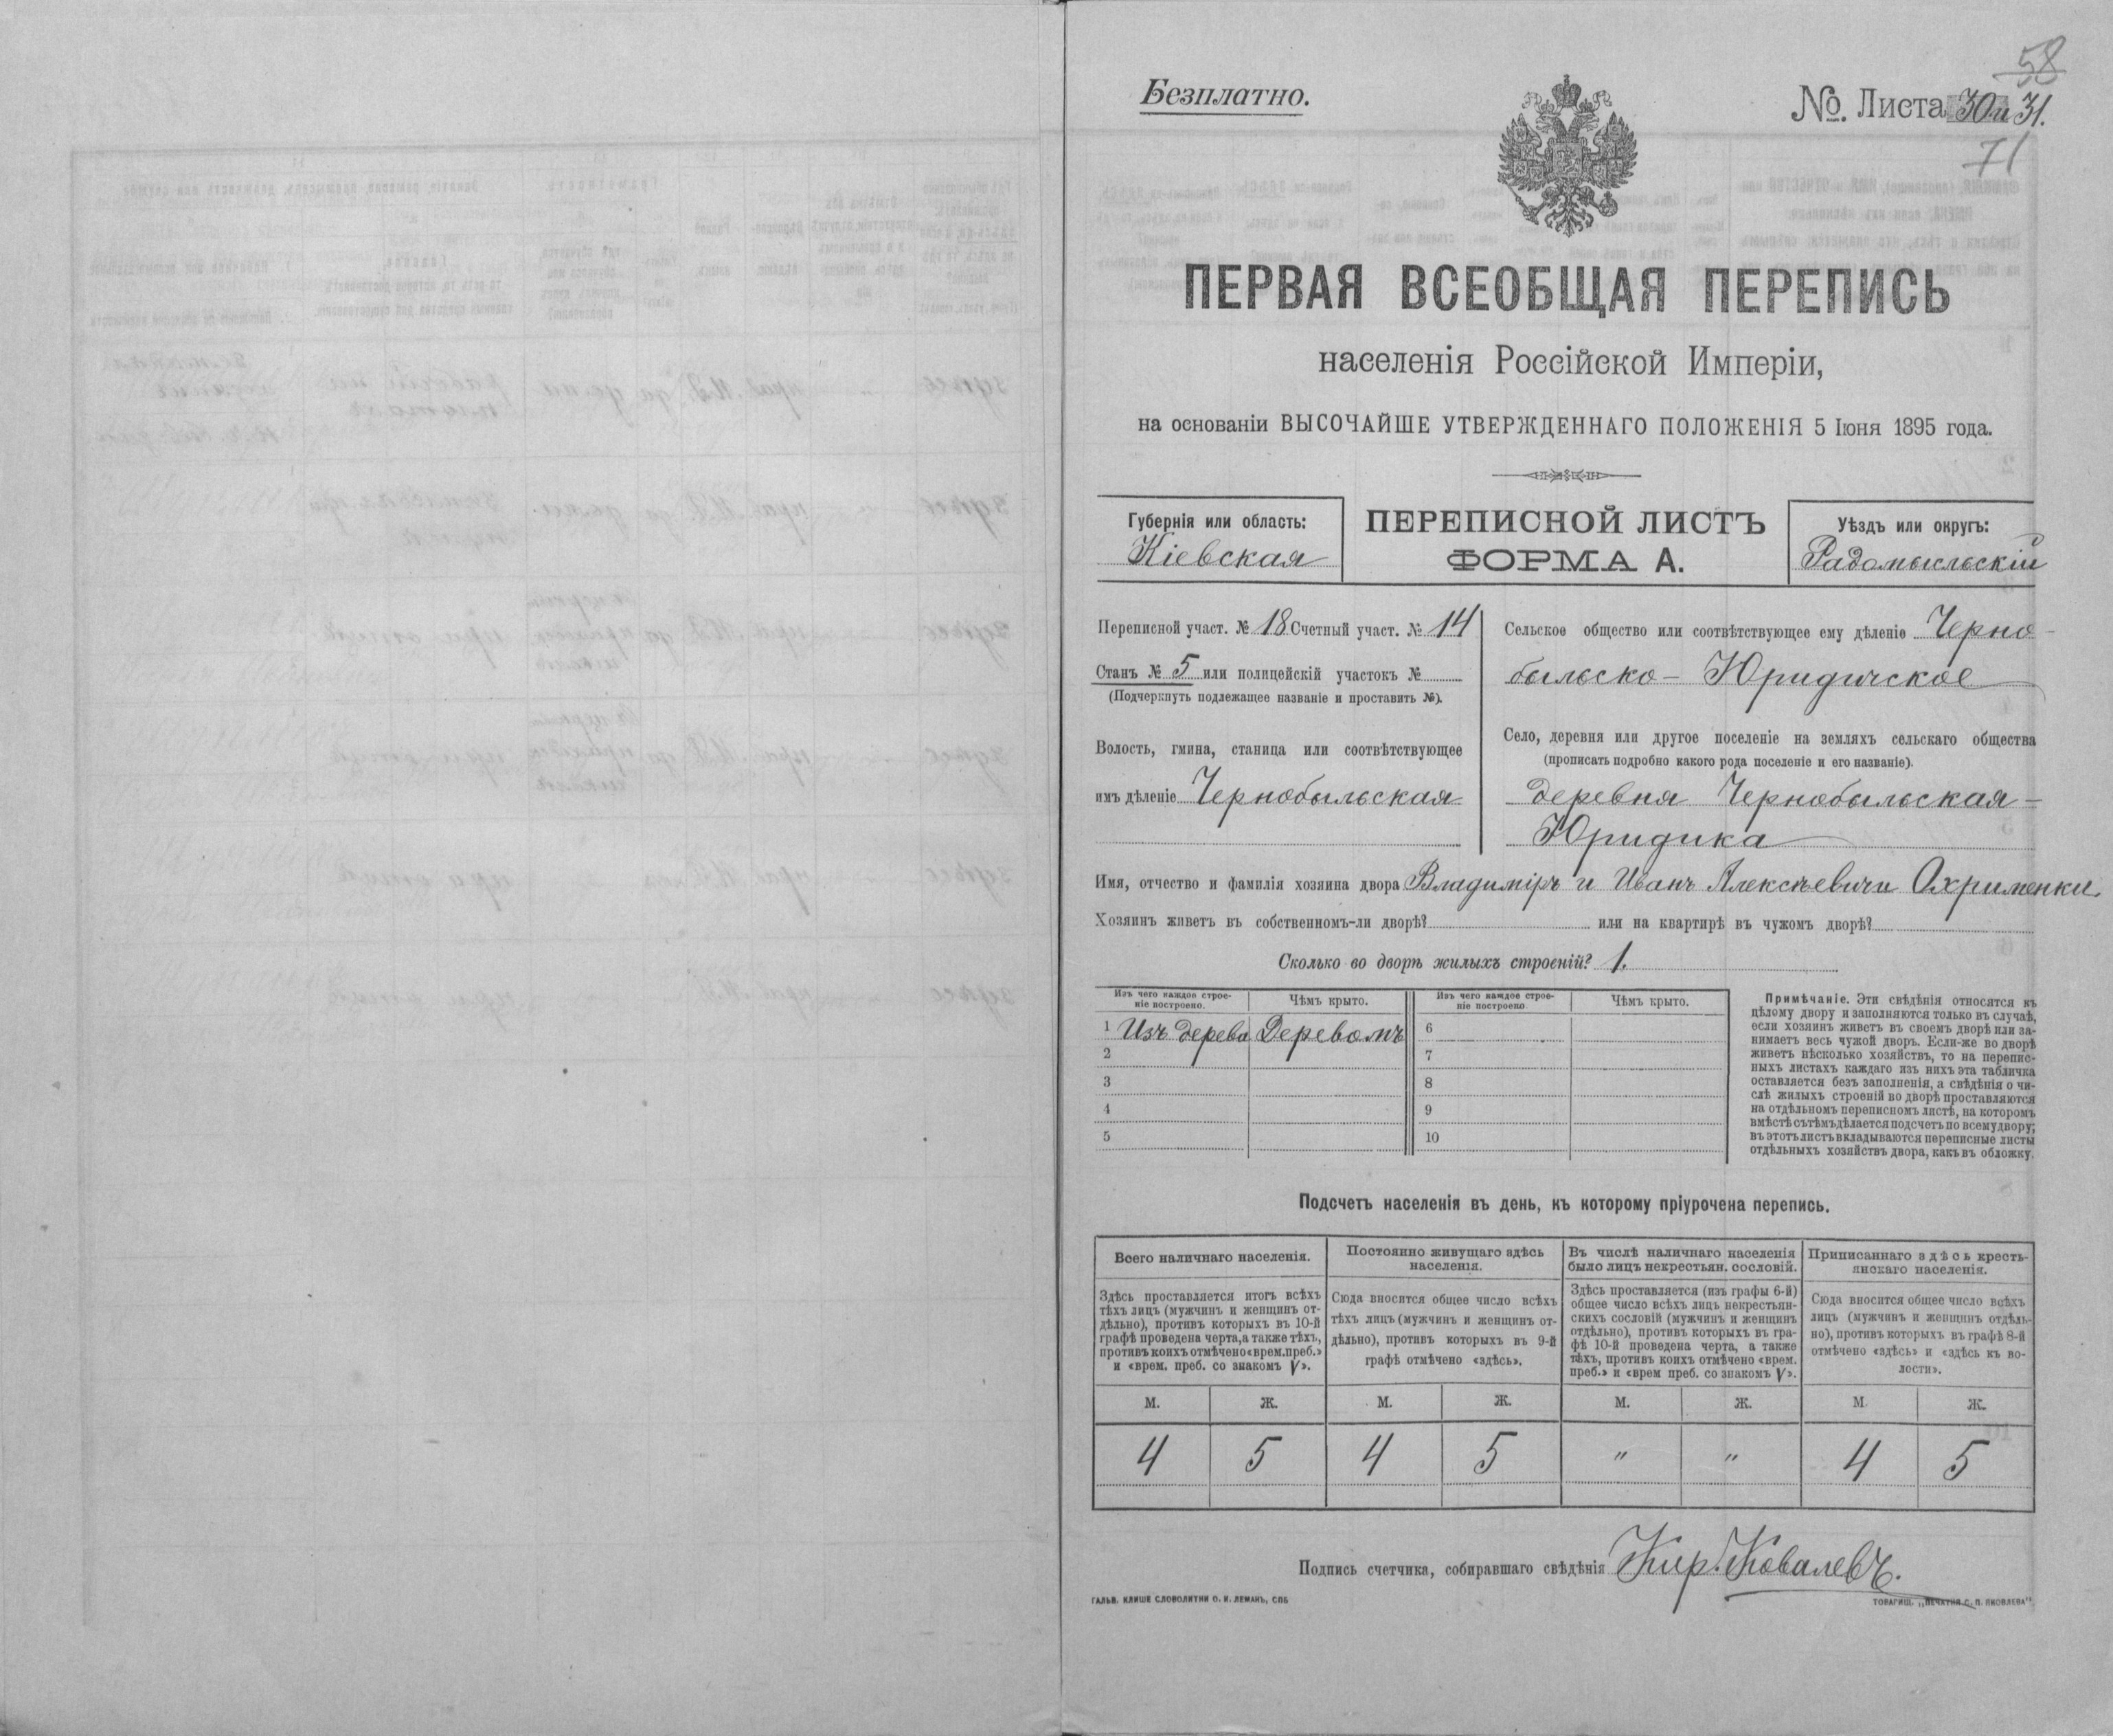 58
Безплатно.
№. Листа 30 и 31.
71
ПЕРВАЯ ВСЕОБЩАЯ ПЕРЕПИСЬ
населенія Россійской Имперіи,
на основаніи ВЫСОЧАЙШЕ УТВЕРЖДЕННАГО ПОЛОЖЕНІЯ 5 Іюня 1895 года.
Губернія или область:
Кіевская
ПЕРЕПИСНОЙ ЛИСТЪ
ФОРМА А.
Уѣздъ или округъ:
Радомысльскій
Переписной участ. № 18. Счетный участ. № 14
Станъ № 5 или полицейскій участокъ №
(Подчеркнуть подлежащее названіе и проставить №).
Волость, гмина, станица или соотвѣтствующее
имъ дѣленіе Чернобыльская
Сельское общество или соотвѣтствующее ему дѣленіе Черно-
быльско-Юридичское
Село, деревня или другое поселеніе на земляхъ сельскаго общества
(прописать подробно какого рода поселеніе и его названіе).
деревня Чернобыльская-
Юридика
Имя, отчество и фамилія хозяина двора Владиміръ и Иванъ Алексѣевичи Охрименки.
Хозяинъ живетъ въ собственномъ-ли дворѣ? или на квартирѣ въ чужомъ дворѣ?
Сколько во дворѣ жилыхъ строеній? 1.
Изъ чего каждое строе-
ніе построено.
Чѣмъ крыто.
Изъ чего каждое строе-
ніе построено
Чѣмъ крыто.
1 Изъ дерева Деревомъ 6
2 7
3 8
4 9
5 10
Примѣчаніе. Эти свѣдѣнія относятся къ
цѣлому двору и заполняются только въ случаѣ,
если хозяинъ живетъ въ своемъ дворѣ или за-
нимаетъ весь чужой дворъ. Если-же во дворѣ
живетъ нѣсколько хозяйствъ, то на перепис-
ныхъ листахъ каждаго изъ нихъ эта табличка
оставляется безъ заполненія, а свѣдѣнія о чи-
слѣ жилыхъ строеній во дворѣ проставляются
на отдѣльномъ переписномъ листѣ, на которомъ
вмѣстѣ съ тѣмъ дѣлается подсчетъ по всему двору;
въ этотъ листъ вкладываются переписные листы
отдѣльныхъ хозяйствъ двора, какъ въ обложку.
Подсчетъ населенія въ день, къ которому пріурочена перепись.
Всего наличнаго населенія.
Постоянно живущаго здѣсь
населенія.
Въ числѣ наличнаго населенія
было лицъ некрестьян. сословій.
Приписаннаго здѣсь кресть-
янскаго населенія.
Здѣсь проставляется итогъ всѣхъ
тѣхъ лицъ (мужчинъ и женщинъ от-
дѣльно), противъ которыхъ въ 10-й
графѣ проведена черта, а также тѣхъ,
противъ коихъ отмѣчено «врем. преб.»
и «врем. преб. со знакомъ V».
Сюда вносится общее число всѣхъ
тѣхъ лицъ (мужчинъ и женщинъ от-
дѣльно), противъ которыхъ въ 9-й
графѣ отмѣчено «здѣсь».
Здѣсь проставляется (изъ графы 6-й)
общее число всѣхъ лицъ некрестьян-
скихъ сословій (мужчинъ и женщинъ
отдѣльно), противъ которыхъ въ гра-
фѣ 10-й проведена черта, а также
тѣхъ, противъ коихъ отмѣчено «врем.
преб.» и «врем преб. со знакомъ V».
Сюда вносится общее число всѣхъ
лицъ (мужчинъ и женщинъ отдѣль-
но), противъ которыхъ въ графѣ 8-й
отмѣчено «здѣсь» и «здѣсь къ во-
лости».
М. Ж. М. Ж. М. Ж. М. Ж.
4 5 4 5 " " 4 5
Подпись счетчика, собиравшаго свѣдѣнія Кир. Ковалевъ.
ГАЛЬВ. КЛИШЕ СЛОВОЛИТНИ О. И. ЛЕМАНЪ, СПБ
ТОВАРИЩ. „ПЕЧАТНЯ С. П. ЯКОВЛЕВА"